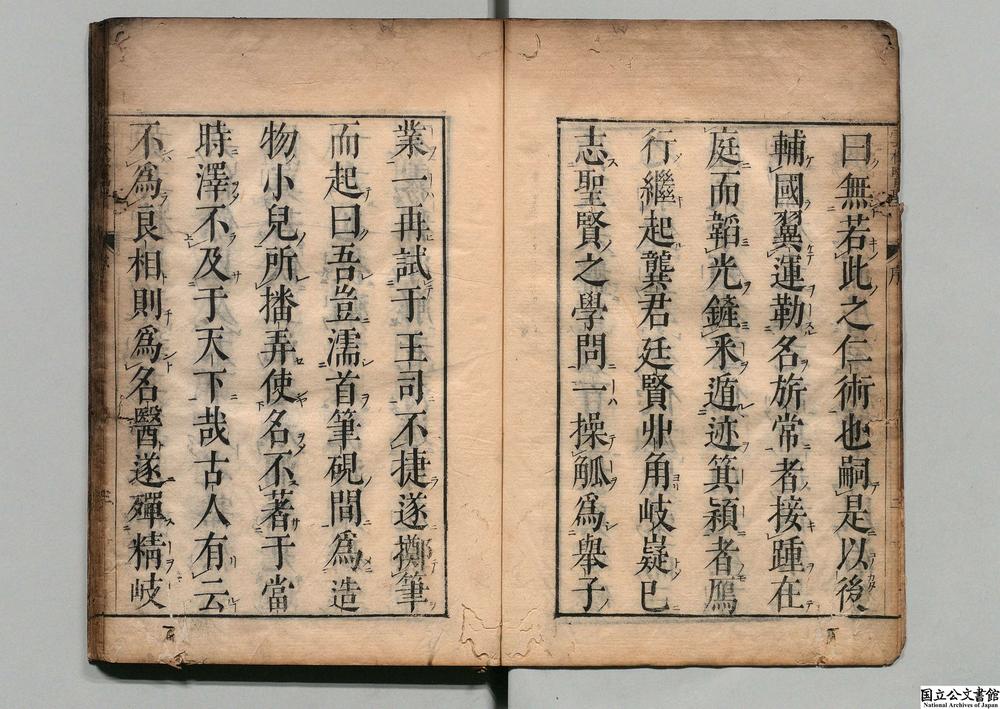 曰無若此之仁術也嗣是以後
輔國翼運勒名旂常者接踵在
庭而韜光鏟釆遁迹箕潁者鴈
行繼起龔君廷賢丱角岐嶷已
志聖賢之學問一操觚爲舉子
業一再試于王司不捷遂擲筆
而起曰吾豈濡首筆硯間爲造
物小兒所播弄使名不著于當
時澤不及于天下哉古人有云
不爲良相則爲名醫遂殫精岐
序
国立公文書館
National Archives of Japan